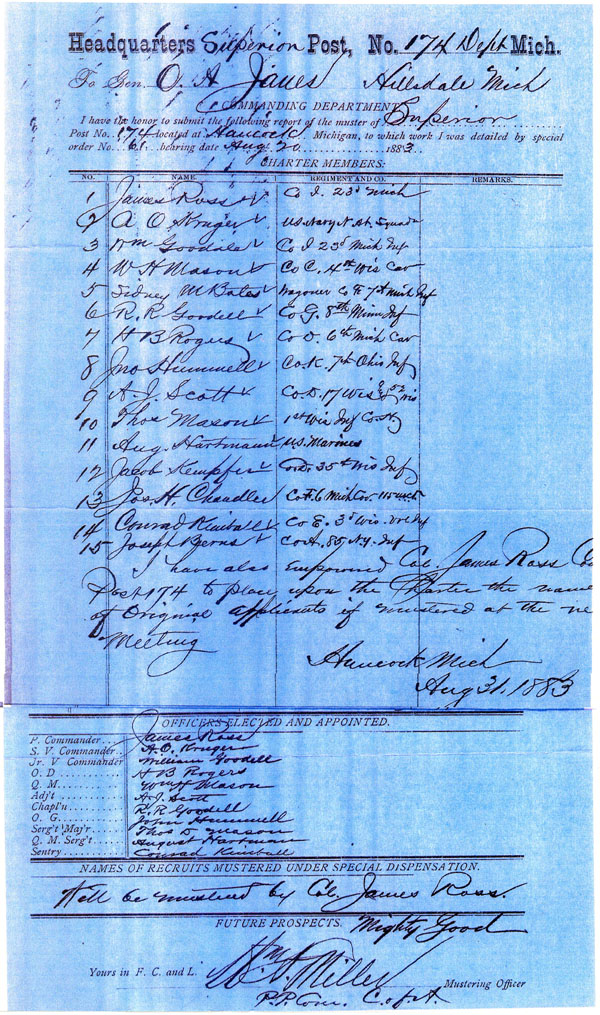 Headquarters Superion Post, No. 174 Dept Mich.
To Gen. O. A Janes Hillsdale Mich
COMMANDING DEPARTMENT
I have the honor to submit the following report of the muster of Superior
Post No. 174 located at Hancock Michigan, to which work I was detailed by special
order No. 61 bearing date Aug 20 1883.
CHARTER MEMBERS:
NO. NAME REGIMENT AND CO. REMARKS.
1 James Ross Co I. 23d Mich
2 A O Kruger US Navy N. At. Squad
3 Wm Goodale Co I 23d Mich Inf
4 W H Mason Co C. 4th Wis Cav
5 Sidney M Bates Wagoner Co E 7th Mich Inf
6 R. R Goodell Co G. 8th Minn Inf
7 H B Rogers Co D. 6th Mich Cav
8 Jno Hummell Co. K. 7th Ohio Inf
9 A. J. Scott Co. D. 17 Wis & 52 Wis
10 Thos Mason 1st Wis Inf Co.
11 Aug. Hartmann U.S. Marines
12 Jacob Kempfer Co D. 35th Wis Inf
13 Jos. H. Chandler Co F. 6 Mich Cav.
14 Conrad Kimball Co E. 3d Wis. Vol Inf
15 Joseph Berns Co A. 85 N.Y. Inf
I have also empowered Col. James Ross
Post 174 to place upon the Charter the name
of Original applicants if mustered at the ne
Meeting
Hancock Mich
Aug 31, 1883
OFFICERS ELECTED AND APPOINTED.
P. Commander.. James Ross
S. V. Commander.. A. O. Kruger
Jr. V Commander William Goodell
O. D H B Rogers
Q. M. Wm H Mason
Adj't A. J. Scott
Chapl'n R. R Goodell
O. G. John Hummell
Serg't Maj'r Thos D Mason
Q. M. Serg't August Hartmann
Sentry Conrad Kimball
NAMES OF RECRUITS MUSTERED UNDER SPECIAL DISPENSATION.
Will be mustered by Col James Ross.
FUTURE PROSPECTS. Mighty Good
Yours in F. C. and L. Wm. D. Miller Mustering Officer
P. P. Com. C. of A.